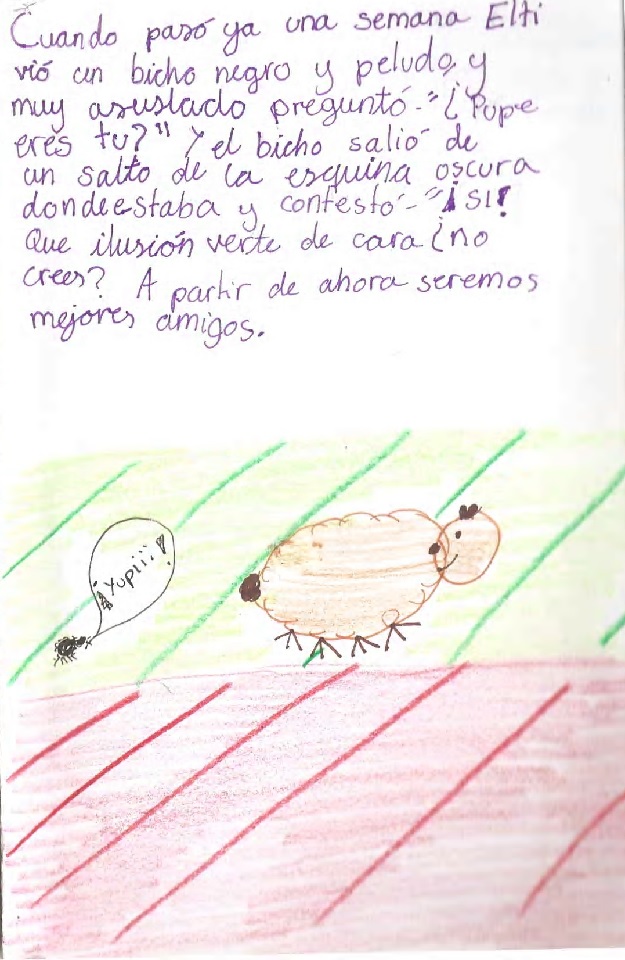 Cuando pasó ya una semana Elti
vió un bicho negro y peludo, y
muy asustado preguntó-"¿Pupe
eres tu?" Y el bicho salió de
un salto de la esquina oscura
donde estaba y contestó-"¡SI!
Que ilusión verte de cara ¿no
crees? A partir de ahora seremos
mejores amigos.
¡Yupiii!